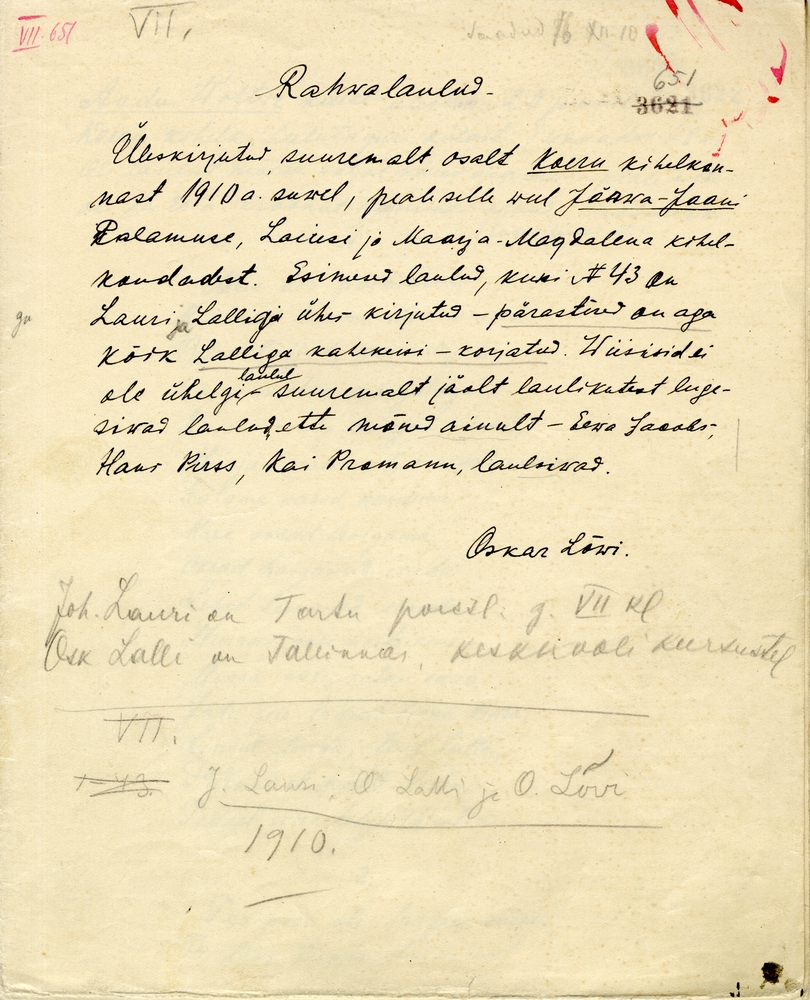 VII 651
VII.
Saadud 16 XII 10
651
3621
Rahwalaulud.
Üleskirjutud, suuremalt osalt Koeru kihelkon-
nast 1910 a. suwel, peale selle weel Järwa-Jaani
Palamuse, Laiusi ja Maarja-Magdalena kihel-
kondadest. Esimesed laulud, kuni № 43 on
Lauri ja Lalliga ühes kirjutud – pärastised on aga
kõik Lalliga kahekeisi – korjatud. Wiisisid ei
ole ühelgi laulul suuremalt jäolt laulikutest luge-
siwad laulud ette mõned ainult – Eewa Jacobs,
Hans Pirss, Kai Promann, laulsiwad.
Oskar Lõwi.
Joh. Lauri on Tartu poegl. g. VII kl
Osk Lalli on Tallinnas, keskkooli kursustel
VII.
1-43. J. Lauri, O Lalli ja O. Lõvi
1910.